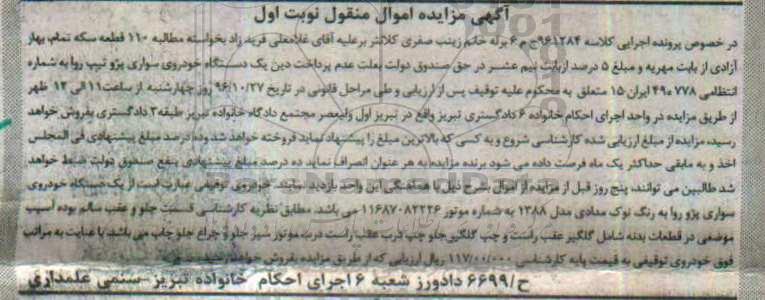 آگهی مزایده اموال منقول نوبت اول
در خصوص پرونده اجرایی کلاسه ۹۶۱۲۸۴ج م ۶ برله خانم زینب صفری کلانتر برعلیه آقای غلامعلی فربد راد بخواسته مطالبه ۱۱۰ قطعه سکه تمام بهار
آزادی از بابت مهریه و مبلغ ۵ درصد ازبابت نیم عشر در حق صندوق دولت بعلت عدم پرداخت دین یک دستگاه خودروی سواری پژو تیپ روا به شماره
انتظامی ۷۷۸ ۴۹ ایران ۱۵ متعلق به محکوم علیه توقیف پس از ارزیابی و طی مراحل قانونی در تاریخ ۹۶/۱۰/۲۷ روز چهارشنبه از ساعت ۱۱ الی ۱۲ ظهر
از طریق مزایده در واحد اجرای احکام خانواده ۶ دادگستری تبریز واقع در تبریز اول ولیعصر مجتمع دادگاه خانواده تبریز طبقه ۳ دادگستری بفروش خواهد
رسید، مزایده از مبلغ ارزیابی شده کارشناسی شروع و به کسی که بالاترین مبلغ را پیشنهاد نماید فروخته خواهد شد وده درصد مبلغ پیشنهادی فی المجلس
اخذ و به مابقی حداکثر یک ماه فرصت داده می شود برنده مزایده به هر عنوان انصراف نماید ده درصد مبلغ پیشنهادی بنفع صندوق دولت ضبط خواهد
شد طالبین می توانند، پنج روز قبل از مزایده از اموال بشرح ذیل با هماهنگی این واحد بازدید نمایند. خودروی توقیفی عبارت است از یک دستگاه خودروی
سواری پژو روا به رنگ نوک مدادی مدل ۱۳۸۸ به شماره موتور ۱۱۶۸۷۰۸۲۲۲۶ می باشد مطابق نظریه کارشناسی قسمت جلو و عقب سالم بوده آسیب
موضعی در قطعات بدنه شامل گلگیر عقب راست و چپ گلگیر جلو چپ درب عقب راست درب موتور سپر جلو و چراغ جلو چپ می باشد با عنایت به مراتب
فوق خودروی توقیفی به قیمت پایه کارشناسی ۱۱۷/۰۰/۰۰۰ ریال ارزیابی که از طریق مزایده بفروش خواهد رسید
ح/۶۶۹۹ دادورز شعبه ۶ اجرای احکام خانواده تبریز-سنمی علمداری